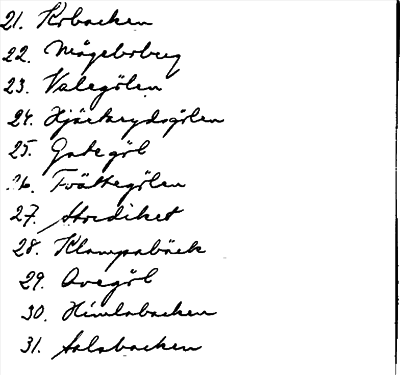 21. Kobacken
22. Mågeboberg
23. Valegölen
24. Hjärtrydsgölen
25. Gategöl
26. Tvättegölen
27. Stordiket
28. Klampabäck
29. Avegöl
30. Himlabacken
31. Salabacken